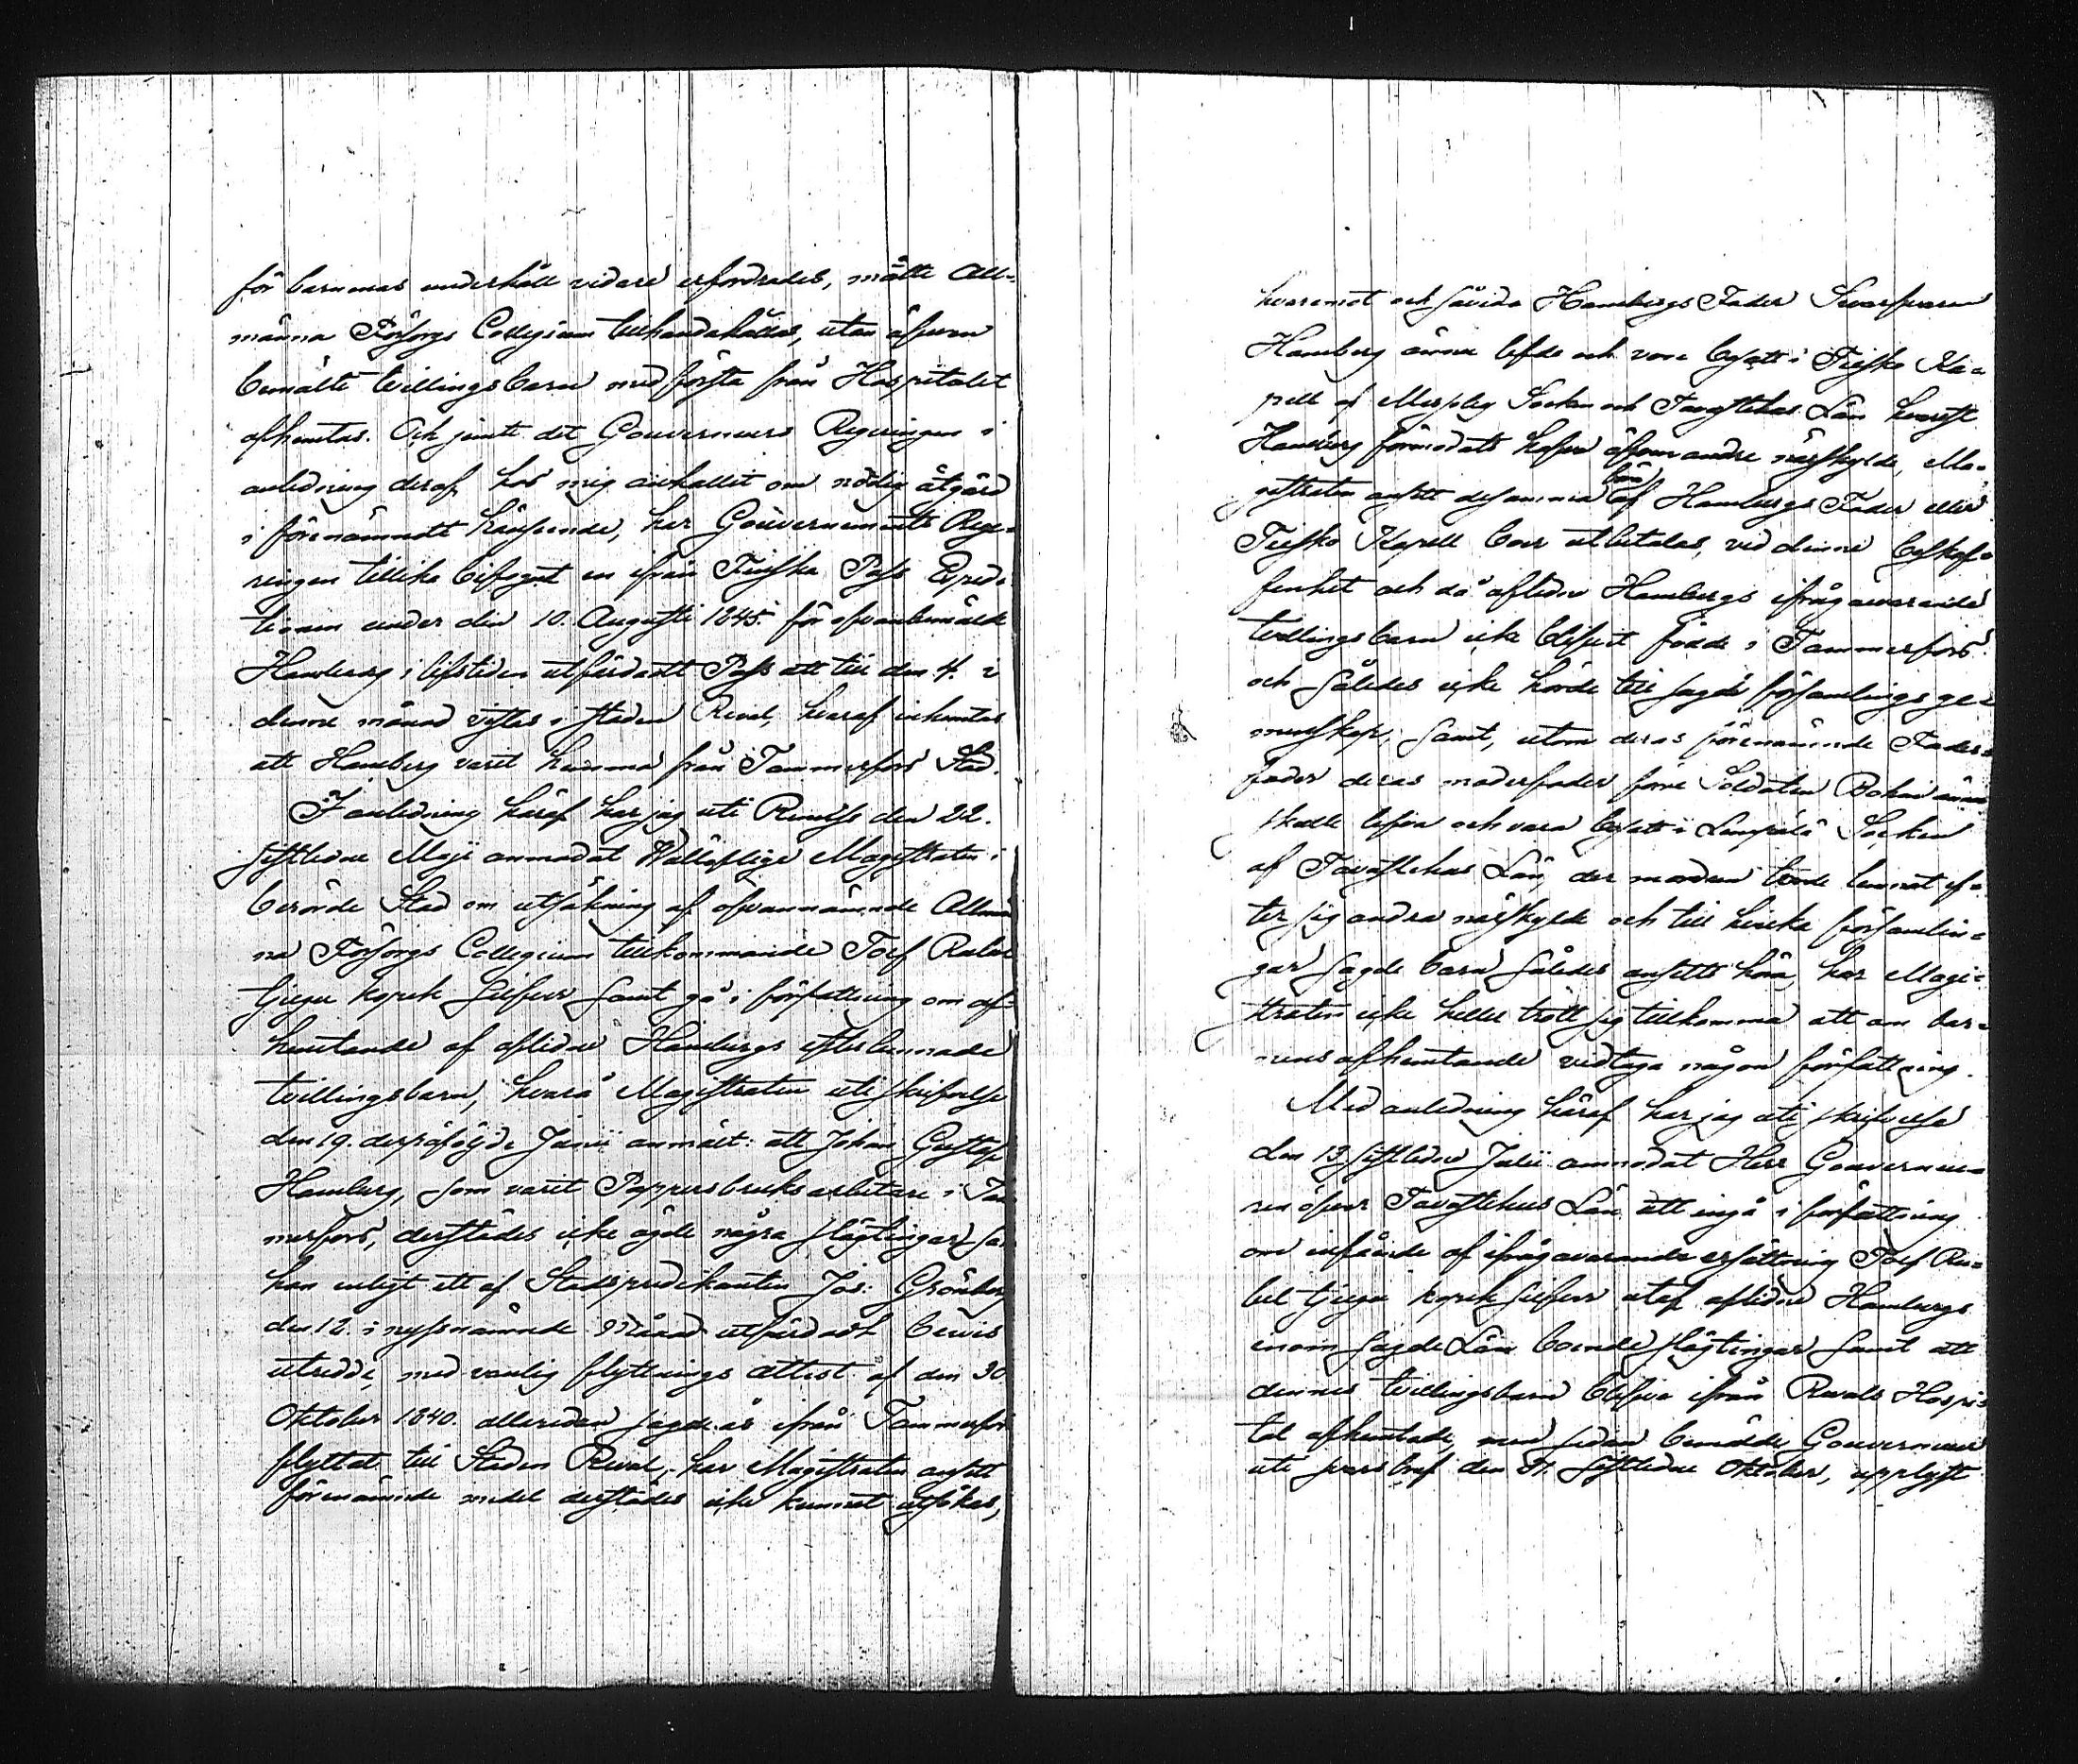 för barnens underhåll vidare erfordrades, måtte All-
männa Försorgs Collegium tillhandahållas, utan äfven
bemälte tvillingsbarn med första från Hospitalet
afhemtas. Och jemte det Gouvernements Regeringen i
anledning deraf hos mig anhållit om nödig åtgärd
i förenämndt hänseende, har Gouvernements Rege-
ringen tillika bifogat en ifrån Finska Pass Expedi-
tionen under den 10. Augusti 1845. för ofvanbemälde
Hamberg i lifstiden utfärdadt Pass att till den 4. i
denne månad vistas i staden Reval, hvaraf inhemtas
att Hamberg varit hemma från Tammerfors Stad.
I anledning häraf har jag uti Remiss den 22.
sistledne Maji anmodat Wällofliga Magistraten i
berörde Stad om utsökning af ofvannämnde Allmän
na Försorgs Collegium tillkommande Tolf Rubel
tjugu kopek Silfver samt gå i författning om af-
hemtande af aflidne Hambergs efterlemnade
tvillingsbarn, hvarå Magistraten uti skrifvelse
den 19. derpåföljde Junii anmält: att Johan Gustaf
Hamberg, som varit Pappersbruksarbetare i Tam
merfors, derstädes icke ägde några slägtingar, sam
han enligt ett af Stadspredikanten Jos: Grönberg
den 12. i nyssnämnde Månad utfärdadt bevis
utredde, med vanlig flyttnings attest af den 30
Oktober 1840. allaredan sagde år ifrån Tammerfors
flyttat till Staden Reval, har Magistraten ansett
förenämnde medel derstädes icke kunnat utsökas,
hvaremot och såvida Hambergs Fader Svarfvaren
Hamberg ännu lefde och vore bosatt i Teisko Ka-
pell af Messuby Socken och Tavastehus Län hvarest
Hamberg förmodats hafva äfven andre närskylde, Ma-
gistraten ansett desamma böra af Hambergs Fader eller
Teisko Kapell bör utbetalas, vid denne beskaf-
fenhet och då aflidne Hambergs ifrågavarande
tvillingsbarn icke blifvit födde i Tammerfors
och således icke hörde till sagde församlings ge-
menskap, samt, utom deras förenämnde Faders
fader deras moderfader förre Soldaten Bohm ännu
skall lefva och vara bosatt i Lempälä Socken
af Tavastehus Län, der modren torde lemnat ef-
ter sig andra närskylde och till hvilka församlin-
gar sagde barn således ansetts höra, har Magi-
straten icke heller trott sig tillkomma att om bar-
nens afhemtande vidtaga någon författning.
Med anledning häraf har jag uti skrifvelse
den 13. sistledne Julii anmodat Herr Gouverneu-
ren öfver Tavastehus Län att ingå i författning
om infående af ifrågavarande ersättning Tolf Ru-
bel tjugu kopek Silfver utaf aflidne Hambergs
inom sagde Län boende slägtingar samt att
dennes tvillingsbarn blifva ifrån Revals Hospi-
tal afhemtade, men sedan bemälde Gouverneur
uti svarsbref den 31. sistledne Oktober, upplyst